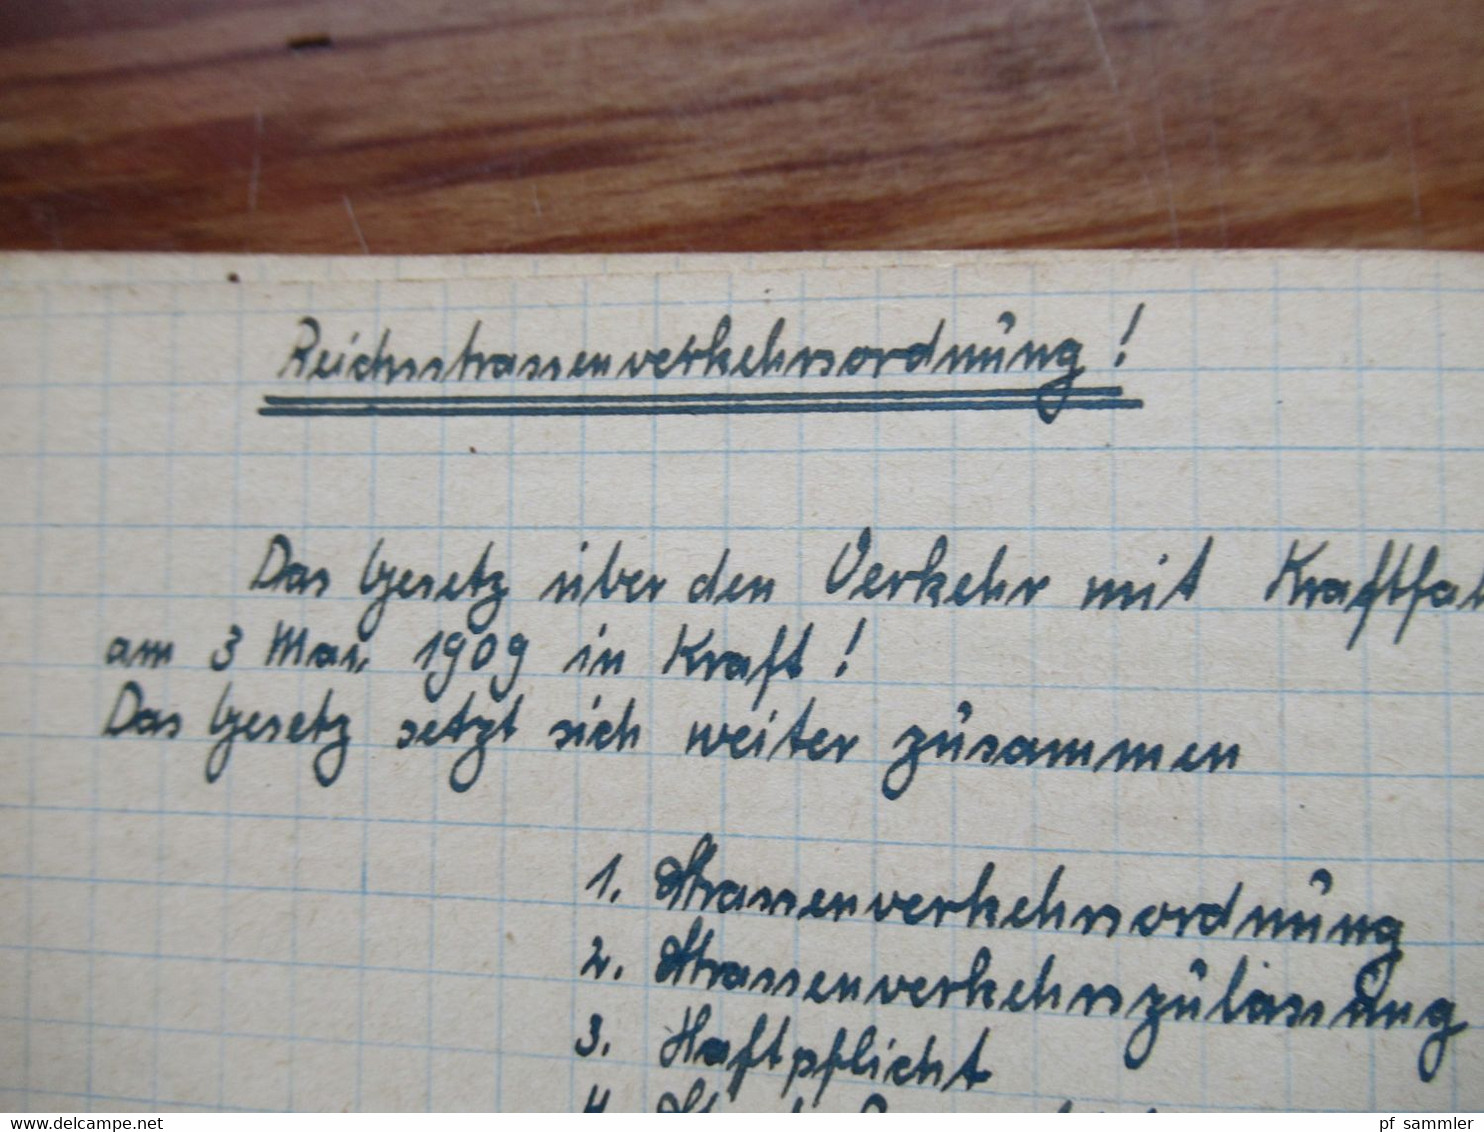 Reichsstrassenverkehrsordnung!
Das Gesetz über den Verkehr mit Kraftfah
am 3 Mai 1909 in Kraft!
Das Gesetz setzt sich weiter zusammen
1. Strassenverkehrsordnung
2. Strassenverkehrszulassung
3. Haftpflicht
4.
delcampe.net
pf_sammler